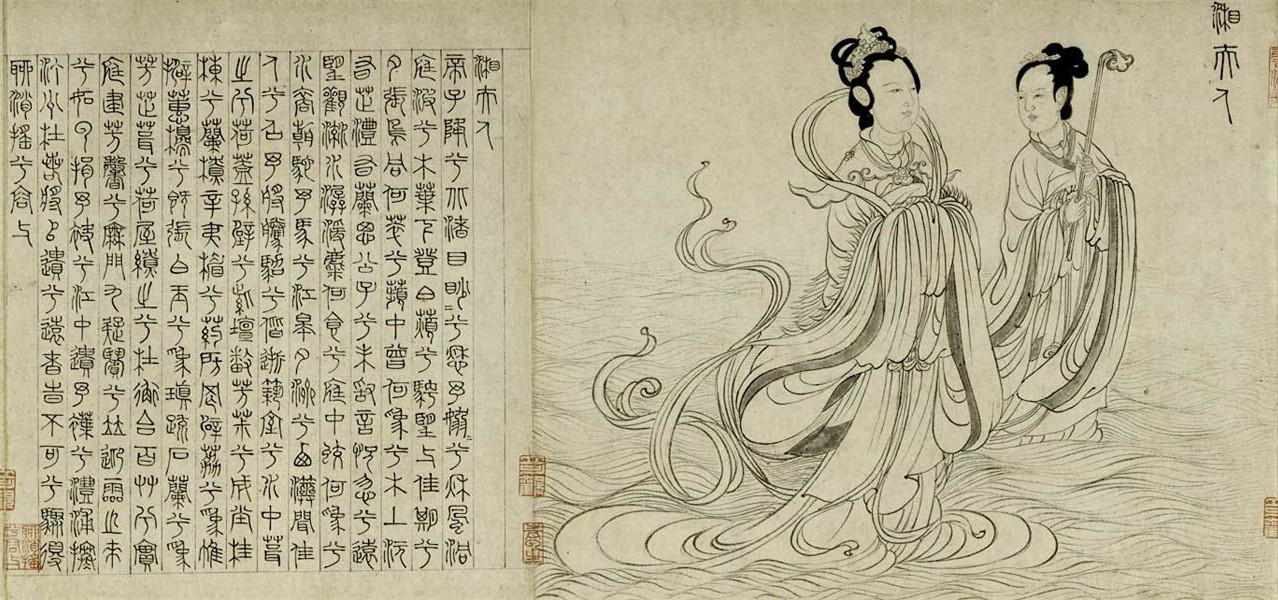 湘夫人
湘夫人
帝子降兮北渚目眇=兮愁予嫋=兮秋風洞
庭波兮木葉下登白薠兮騁望與佳期兮
夕張鳥何萃兮蘋中罾何為兮木上沅
有芷澧有蘭思公子兮未敢言怳忽兮遠
望觀流水潺湲麋何食兮庭中蛟何為兮
水裔朝馳予馬兮江皋夕濟兮西澨聞佳
人兮召予將騰駕兮偕逝築室兮水中葺
之兮荷蓋蓀壁兮紫壇播芳椒兮成堂桂
棟兮蘭橑辛夷楣兮葯房罔薜荔兮為帷
擗蕙櫋兮既張白玉兮為瑱疏石蘭兮為
芳芷葺兮荷屋繚之兮杜衡合百草兮實
庭建芳馨兮廡門九疑繽兮並迎靈之來
兮如雲捐予袂兮江中遺予褋兮澧浦搴
汀洲杜若將以遺兮遠者時不可兮驟得
聊逍遙兮容與